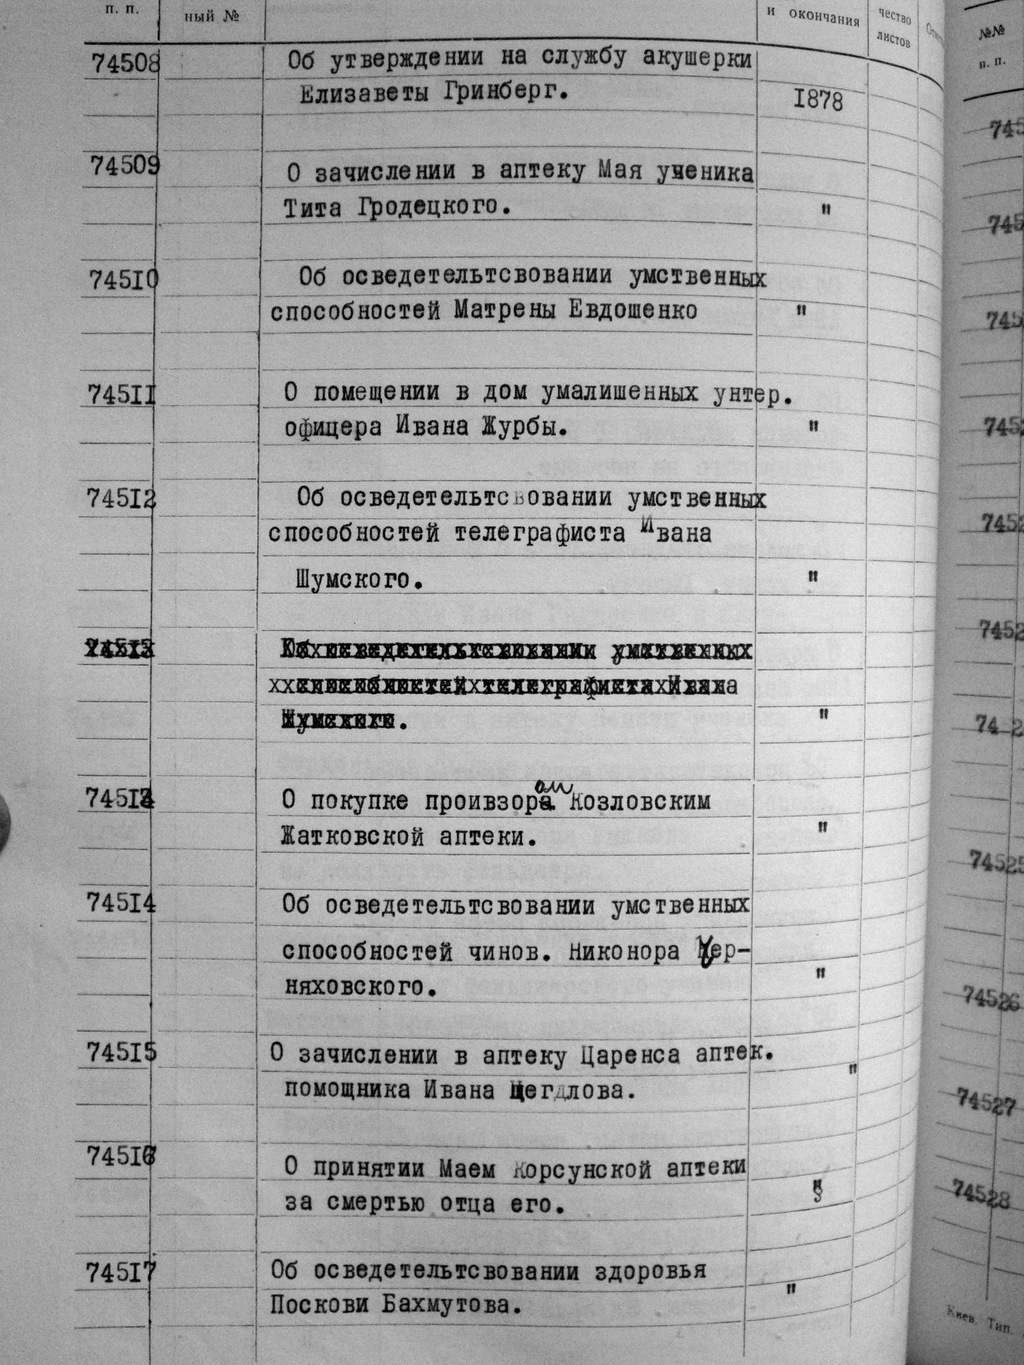 п. п. ный № и окончания чество листов №№ п. п.
74508 Об утверждении на службу акушерки
Елизаветы Гринберг. 1878
74509 О зачислении в аптеку Мая ученика
Тита Гродецкого. "
74510 Об осведетельтсвовании умственных
способностей Матрены Евдошенко "
74511 О помещении в дом умалишенных унтер.
офицера Ивана Журбы. "
74512 Об осведетельтсвовании умственных
способностей телеграфиста Ивана
Шумского. "
74513 Об осведетельтсвовании умственных
способностей телеграфиста Ивана
Шумского. "
74513 О покупке проивзором Козловским
Жатковской аптеки. "
74514 Об осведетельтсвовании умственных
способностей чинов. Никонора Чер-
няховского. "
74515 О зачислении в аптеку Царенса аптек.
помощника Ивана Щегдлова. "
74516 О принятии Маем Корсунской аптеки
за смертью отца его. "
74517 Об осведетельтсвовании здоровья
Поскови Бахмутова. "
74525
74526
74527
74528
Киев. Тип.